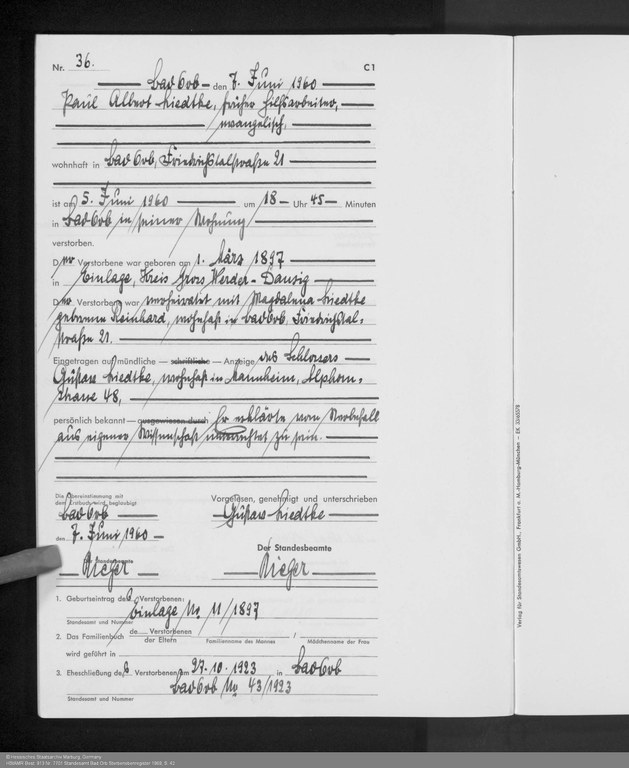 Nr. 36. C 1
Bad Orb den 7. Juni 1960
Paul Albert Liedtke, früher Hilfsarbeiter,
evangelisch,
wohnhaft in Bad Orb, Friedrichstalstraße 21
ist am 5. Juni 1960 um 18 Uhr 45 Minuten
in Bad Orb in seiner Wohnung
verstorben.
Der Verstorbene war geboren am 1. März 1897
in Einlage, Kreis Gross Werder-Danzig
Der Verstorbene war verheiratet mit Magdalena Liedtke
geborene Reinhard, wohnhaft in Bad Orb, Friedrichstal-
straße 21.
Eingetragen auf mündliche — schriftliche — Anzeige des Schlossers
Gustav Liedtke, wohnhaft in Mannheim, Alphorn-
straße 48,
persönlich bekannt — ausgewiesen durch Er erklärte vom Sterbefall
aus eigener Wissenschaft unterrichtet zu sein.
Die Übereinstimmung mit
dem Erstbuch wird beglaubigt
Vorgelesen, genehmigt und unterschrieben
Bad Orb Gustav Liedtke
den 7. Juni 1960
Der Standesbeamte
Der Standesbeamte
Rieger Rieger
1. Geburtseintrag des Verstorbenen:
Einlage No 11/1897
Standesamt und Nummer
2. Das Familienbuch de Verstorbenen / der Eltern
Familienname des Mannes Mädchenname der Frau
wird geführt in
3. Eheschließung des Verstorbenen am 27.10.1923 in Bad Orb
Bad Orb No 43/1923
Standesamt und Nummer
Verlag für Standesamtswesen GmbH., Frankfurt a. M.-Hamburg-München
© Hessisches Staatsarchiv Marburg, Germany